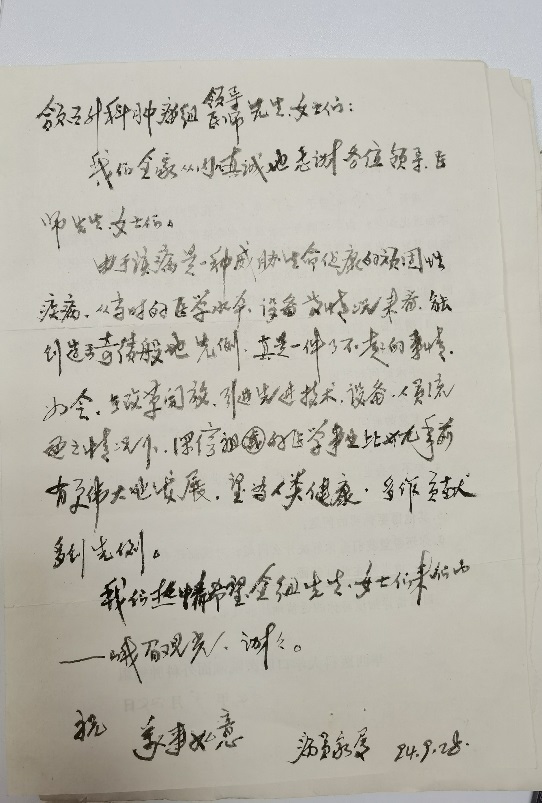 颌面外科肿瘤组领导医师先生、女士们：
我们全家从内心真诚地感谢各位领导、医
师先生、女士们。
由于该病是一种威胁生命健康的顽固性
疾病，从当时的医学水平、设备及情况来看，能
创造出奇迹般地先例，真是一件了不起的事情。
如今，改革开放，引进先进技术、设备、人员流
之情况下，深信祖国的医学事业比九年前
有更伟大地发展，望为人类健康，多作贡献
多创先例。
我们热情希望全组先生、女士们来仙山
——峨眉观光，谢谢。
祝
万事如意
病员家属 94.9.28.